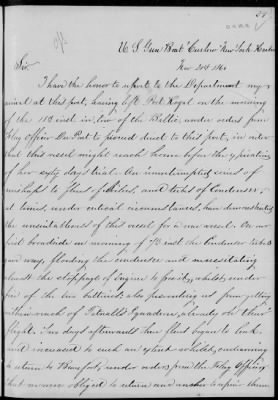 U. S. Gun Boat Curlew New York Harbor
Nov 20th 1861
Sir
I have the honor to report to the Department my
arrival at this port, having left Port Royal on the morning
of the 15th inst, in tow of the Bellvil, under orders from
Flag Officer Du Pont to proceed direct to this port, in order
that this vessel might reach home before the expiration
of her sixty days trial. An uninterrupted series of
mishaps to Flues of Boilers, and tubes of Condenser,
at times, under critical circumstances, have demonstrated
the unsuitableness of this vessel for a war vessel. On our
first broadside on morning of 5th inst the Condenser tubes
gave way, flooding the condenser and necessitating
almost the stoppage of engine to
fire of the two batteries; also preventing us from getting
within reach of Tatnall's Squadron, already on their
flight. Two days afterwards three flues began to leak
and increased to such an extent whilst endeavoring
to return to Beaufort, under orders from the Flag Officer
that we were obliged to return and anchor to repair them